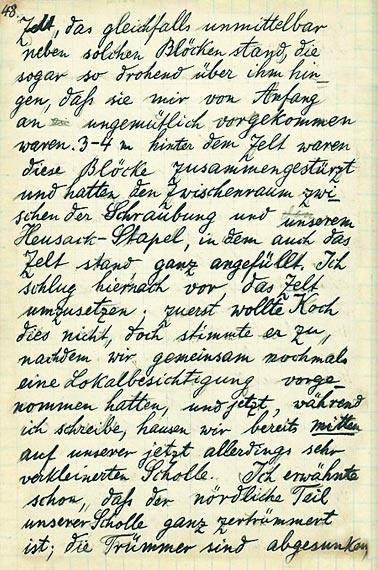 48.
Zelt, das gleichfalls unmittelbar
neben solchen Blöcken stand, die
sogar so drohend über ihm hin-
gen, daß sie mir von Anfang
an ungemütlich vorgekommen
waren. 3-4 m hinter dem Zelt waren
diese Blöcke zusammengestürzt
und hatten den Zwischenraum zwi-
schen der Schraubung und unserem
Heusack-Stapel, in dem auch das
Zelt stand ganz angefüllt. Ich
schlug hiernach vor das Zelt
umzusetzen; zuerst wollte Koch
dies nicht, doch stimmte er zu,
nachdem wir gemeinsam nochmals
eine Lokalbesichtigung vorge-
nommen hatten, und jetzt, während
ich schreibe, hausen wir bereits mitten
auf unserer jetzt allerdings sehr
verkleinerten Scholle. Ich erwähnte
schon, daß der nördliche Teil
unserer Scholle ganz zertrümmert
ist; die Trümmer sind abgesunken,